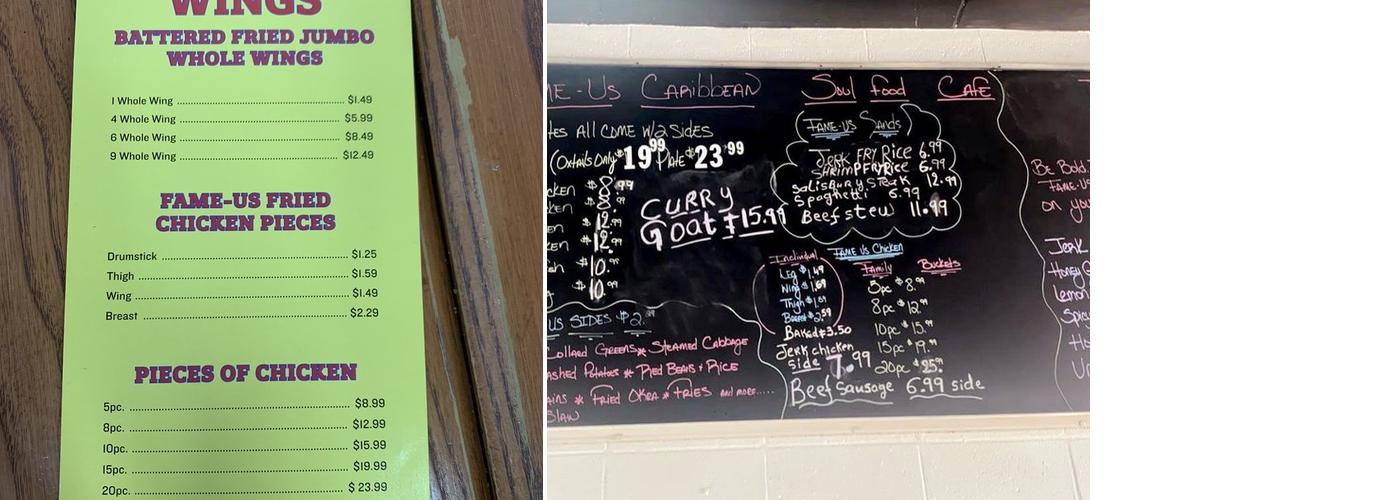 WINGS
BATTERED FRIED JUMBO
WHOLE WINGS
1 Whole Wing $1.49
4 Whole Wing $5.99
6 Whole Wing $8.49
9 Whole Wing $12.49
FAME-US FRIED
CHICKEN PIECES
Drumstick $1.25
Thigh $1.59
Wing $1.49
Breast $2.29
PIECES OF CHICKEN
5pc. $8.99
8pc. $12.99
10pc. $15.99
15pc. $19.99
20pc. $ 23.99
ME-US CARIBBEAN Soul food CAFE
tes All COME W/2 Sides
(Oxtails Only $19.99 Plate $23.99
cken $8.99
cken $8.99
en $12.99
ken $12.99
sh $10.99
$10.99
CURRY
Goat $15.99
US SIDES $2.
Collard Greens * Steamed Cabbage
ashed Potatoes * Pied Beans & Rice
ains * Fried Okra * Fries and more.....
Slaw
FAME-US Sands
Jerk FRY Rice 6.99
SHRIMP FRY Rice 6.99
Salisbury Steak 12.99
Spaghetti 6.99
Beef stew 11.99
FAME US Chicken
Individual
Leg $1.49
Wing $1.69
Thigh
Breast $2.59
Baked $3.50
Jerk chicken
side 7.99
Beef Sausage 6.99 side
Family Buckets
5pc $8.99
8pc $12.99
10pc $15.99
15pc $19.99
20pc $25.99
Be Bold.
FAME-US
on you
Jerk
Honey
Lemon
Spicy